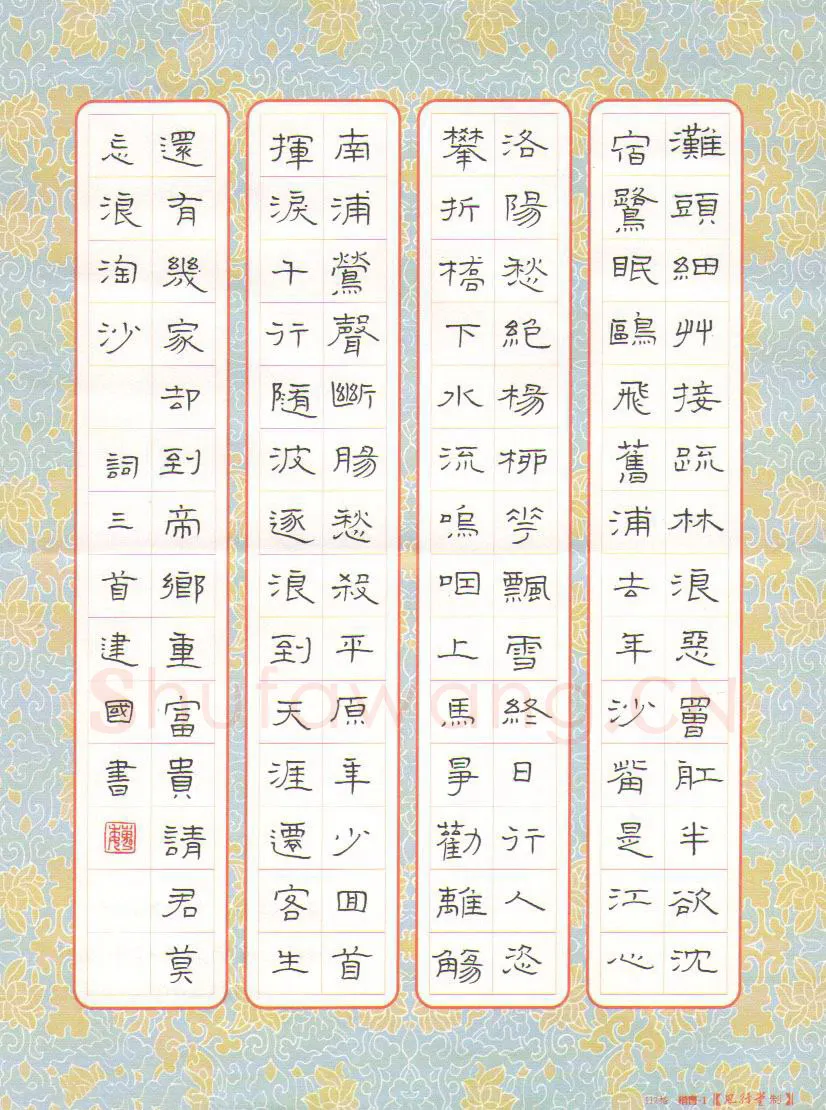 灘頭細艸接疏林浪惡罾舡半欲沈
宿鷺眠鷗飛舊浦去年沙觜是江心
洛陽愁絕楊柳花飄雪終日行人恣
攀折橋下水流嗚咽上馬爭勸離觴
南浦鶯聲斷腸愁殺平原年少囬首
揮淚千行隨波逐浪到天涯遷客生
還有幾家却到帝鄉重富貴請君莫
忘浪淘沙 詞三首建國書
Shufawang.CN